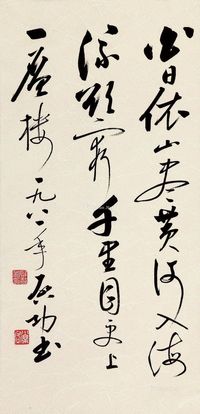 白日依山盡黃河入海
流欲窮千里目更上
一層樓 一九八一年 启功书